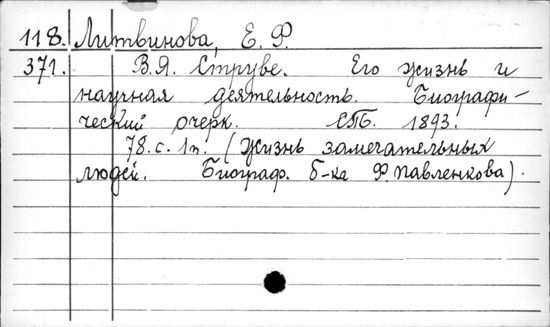 118. Литвинова, Е. Ф.
371. В.Я. Струве. Его жизнь и
научная деятельность. Биографи-
ческий очерк. СПБ. 1893.
78. с. 1п. (Жизнь замечательных
людей. Биограф. б-ка Ф. Павленкова).